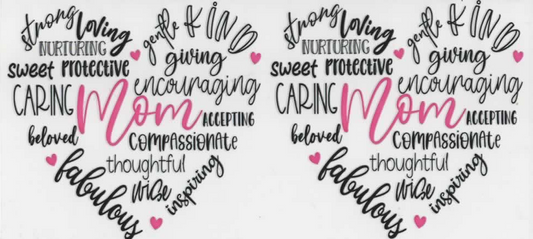 strong loving gentle KIND
NURTURING giving
sweet PROTECTIVE encouraging
CARING Mom ACCEPTING
beloved COMPASSIONATE
thoughtful
fabulous WISE inspiring
strong loving gentle KIND
NURTURING giving
sweet PROTECTIVE encouraging
CARING Mom ACCEPTING
beloved COMPASSIONATE
thoughtful
fabulous WISE inspiring